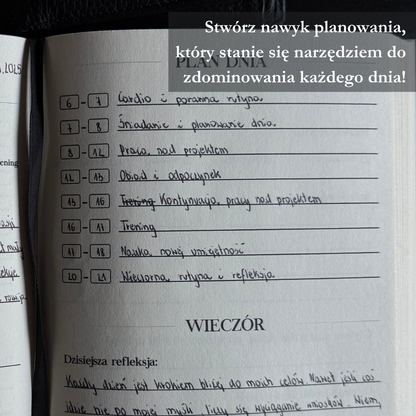 Stwórz nawyk planowania,
który stanie się narzędziem do
zdominowania każdego dnia!
PLAN DNIA
6 - 7 Cardio i poranna rutyna
7 - 8 Śniadanie i planowanie dnia
8 - 12 Praca nad projektem
12 - 13 Obiad i odpoczynek
13 - 16 Trening Kontynuacja pracy nad projektem
16 - 17 Trening
17 - 18 Nauka nowej umiejętności
20 - 21 Wieczorna rutyna i refleksja
WIECZÓR
Dzisiejsza refleksja:
Każdy dzień jest krokiem bliżej do moich celów. Nawet jeśli coś
idzie nie po mojej myśli, liczy się wyciąganie wniosków. Wiem,